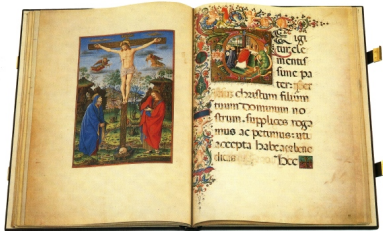 E igi
tur cle
mentis
sime pa
ter: per
christum filium
tuum dominum no
strum. supplices roga
mus ac petimus: uti
accepta habeas bene
Hec